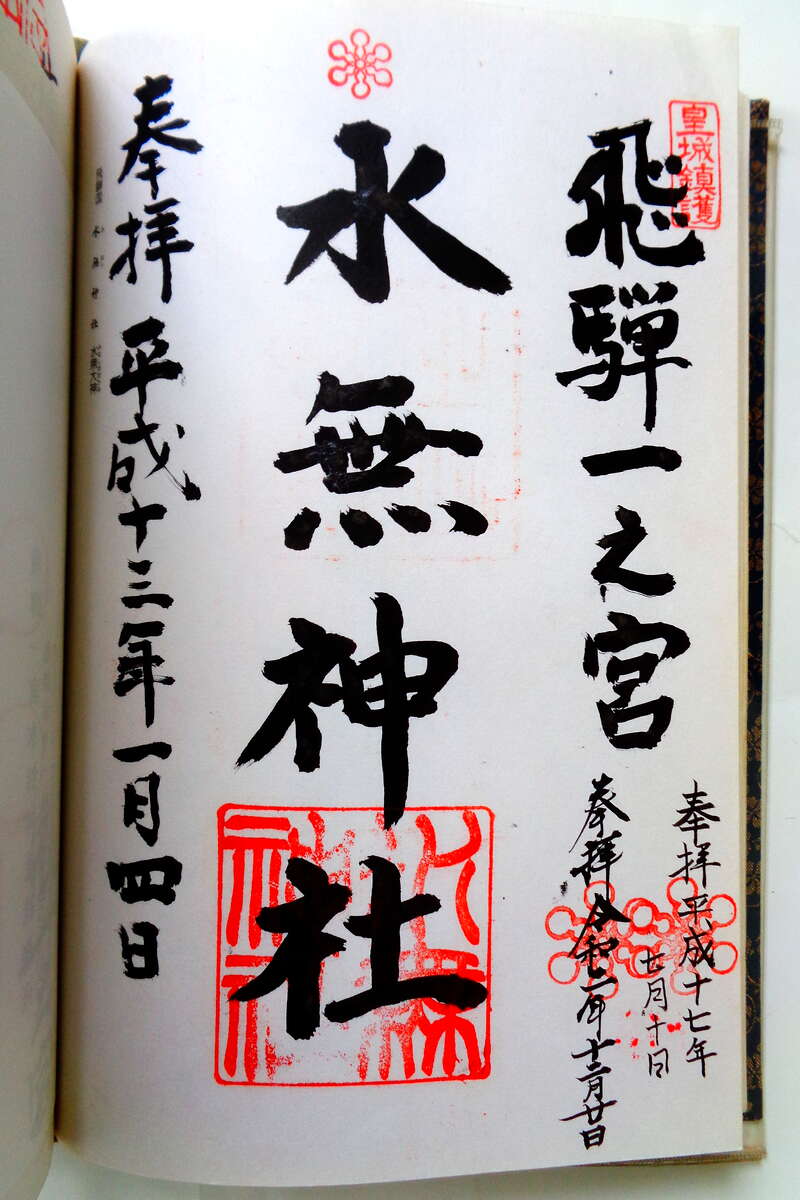 皇城鎮護
飛騨一之宮
奉拝平成十七年
七月十日
奉拝令和二年十二月廿日
水無神社
奉拝 平成十三年一月四日
飛騨国 水無神社 水無大神